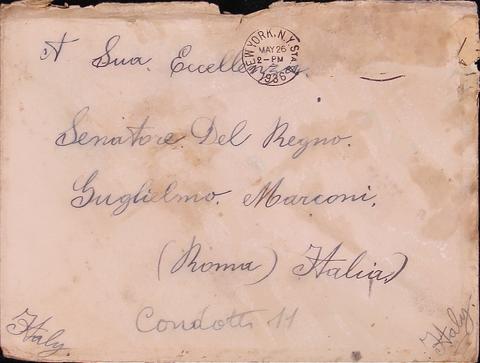 NEW YORK, N.Y. STA.
MAY 26
2-PM
1936
A Sua. Eccellenza.
Senatore. Del Regno.
Guglielmo. Marconi.
(Roma) Italia)
Condotti 11
Italy.
Italy.